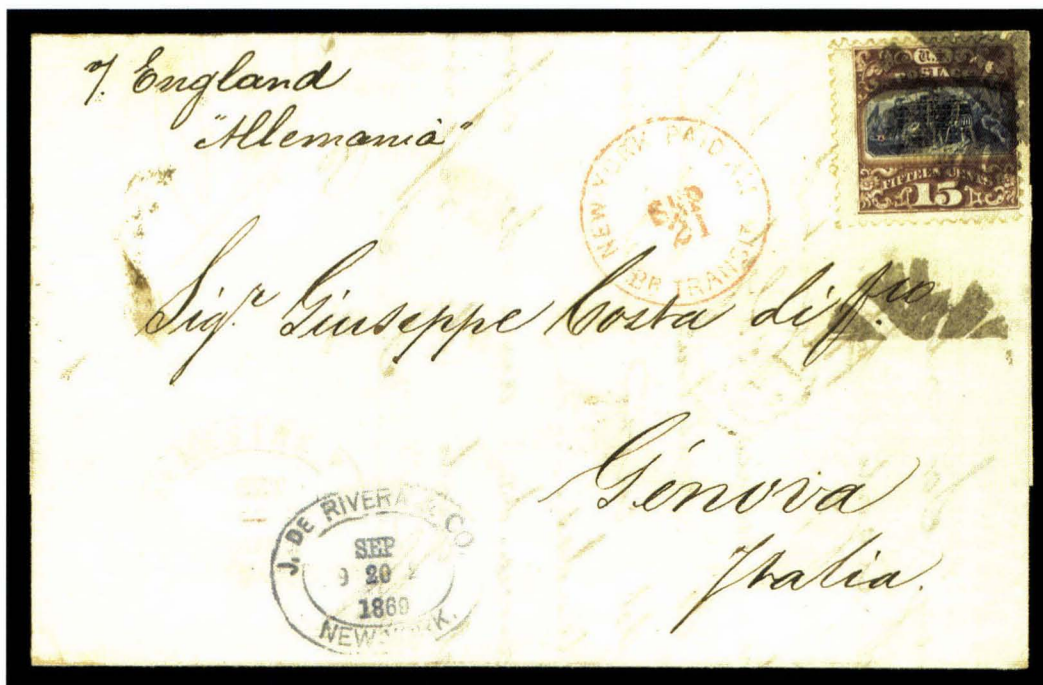 7. England
"Allemania"
U.S.
POSTAGE
FIFTEEN CENTS
15
NEW YORK PAID ALL
BR TRANSIT
Sigr. Giuseppe Costa di f.co
Génova
Italia.
J. DE RIVERA & CO.
SEP
20
1869
NEW YORK.